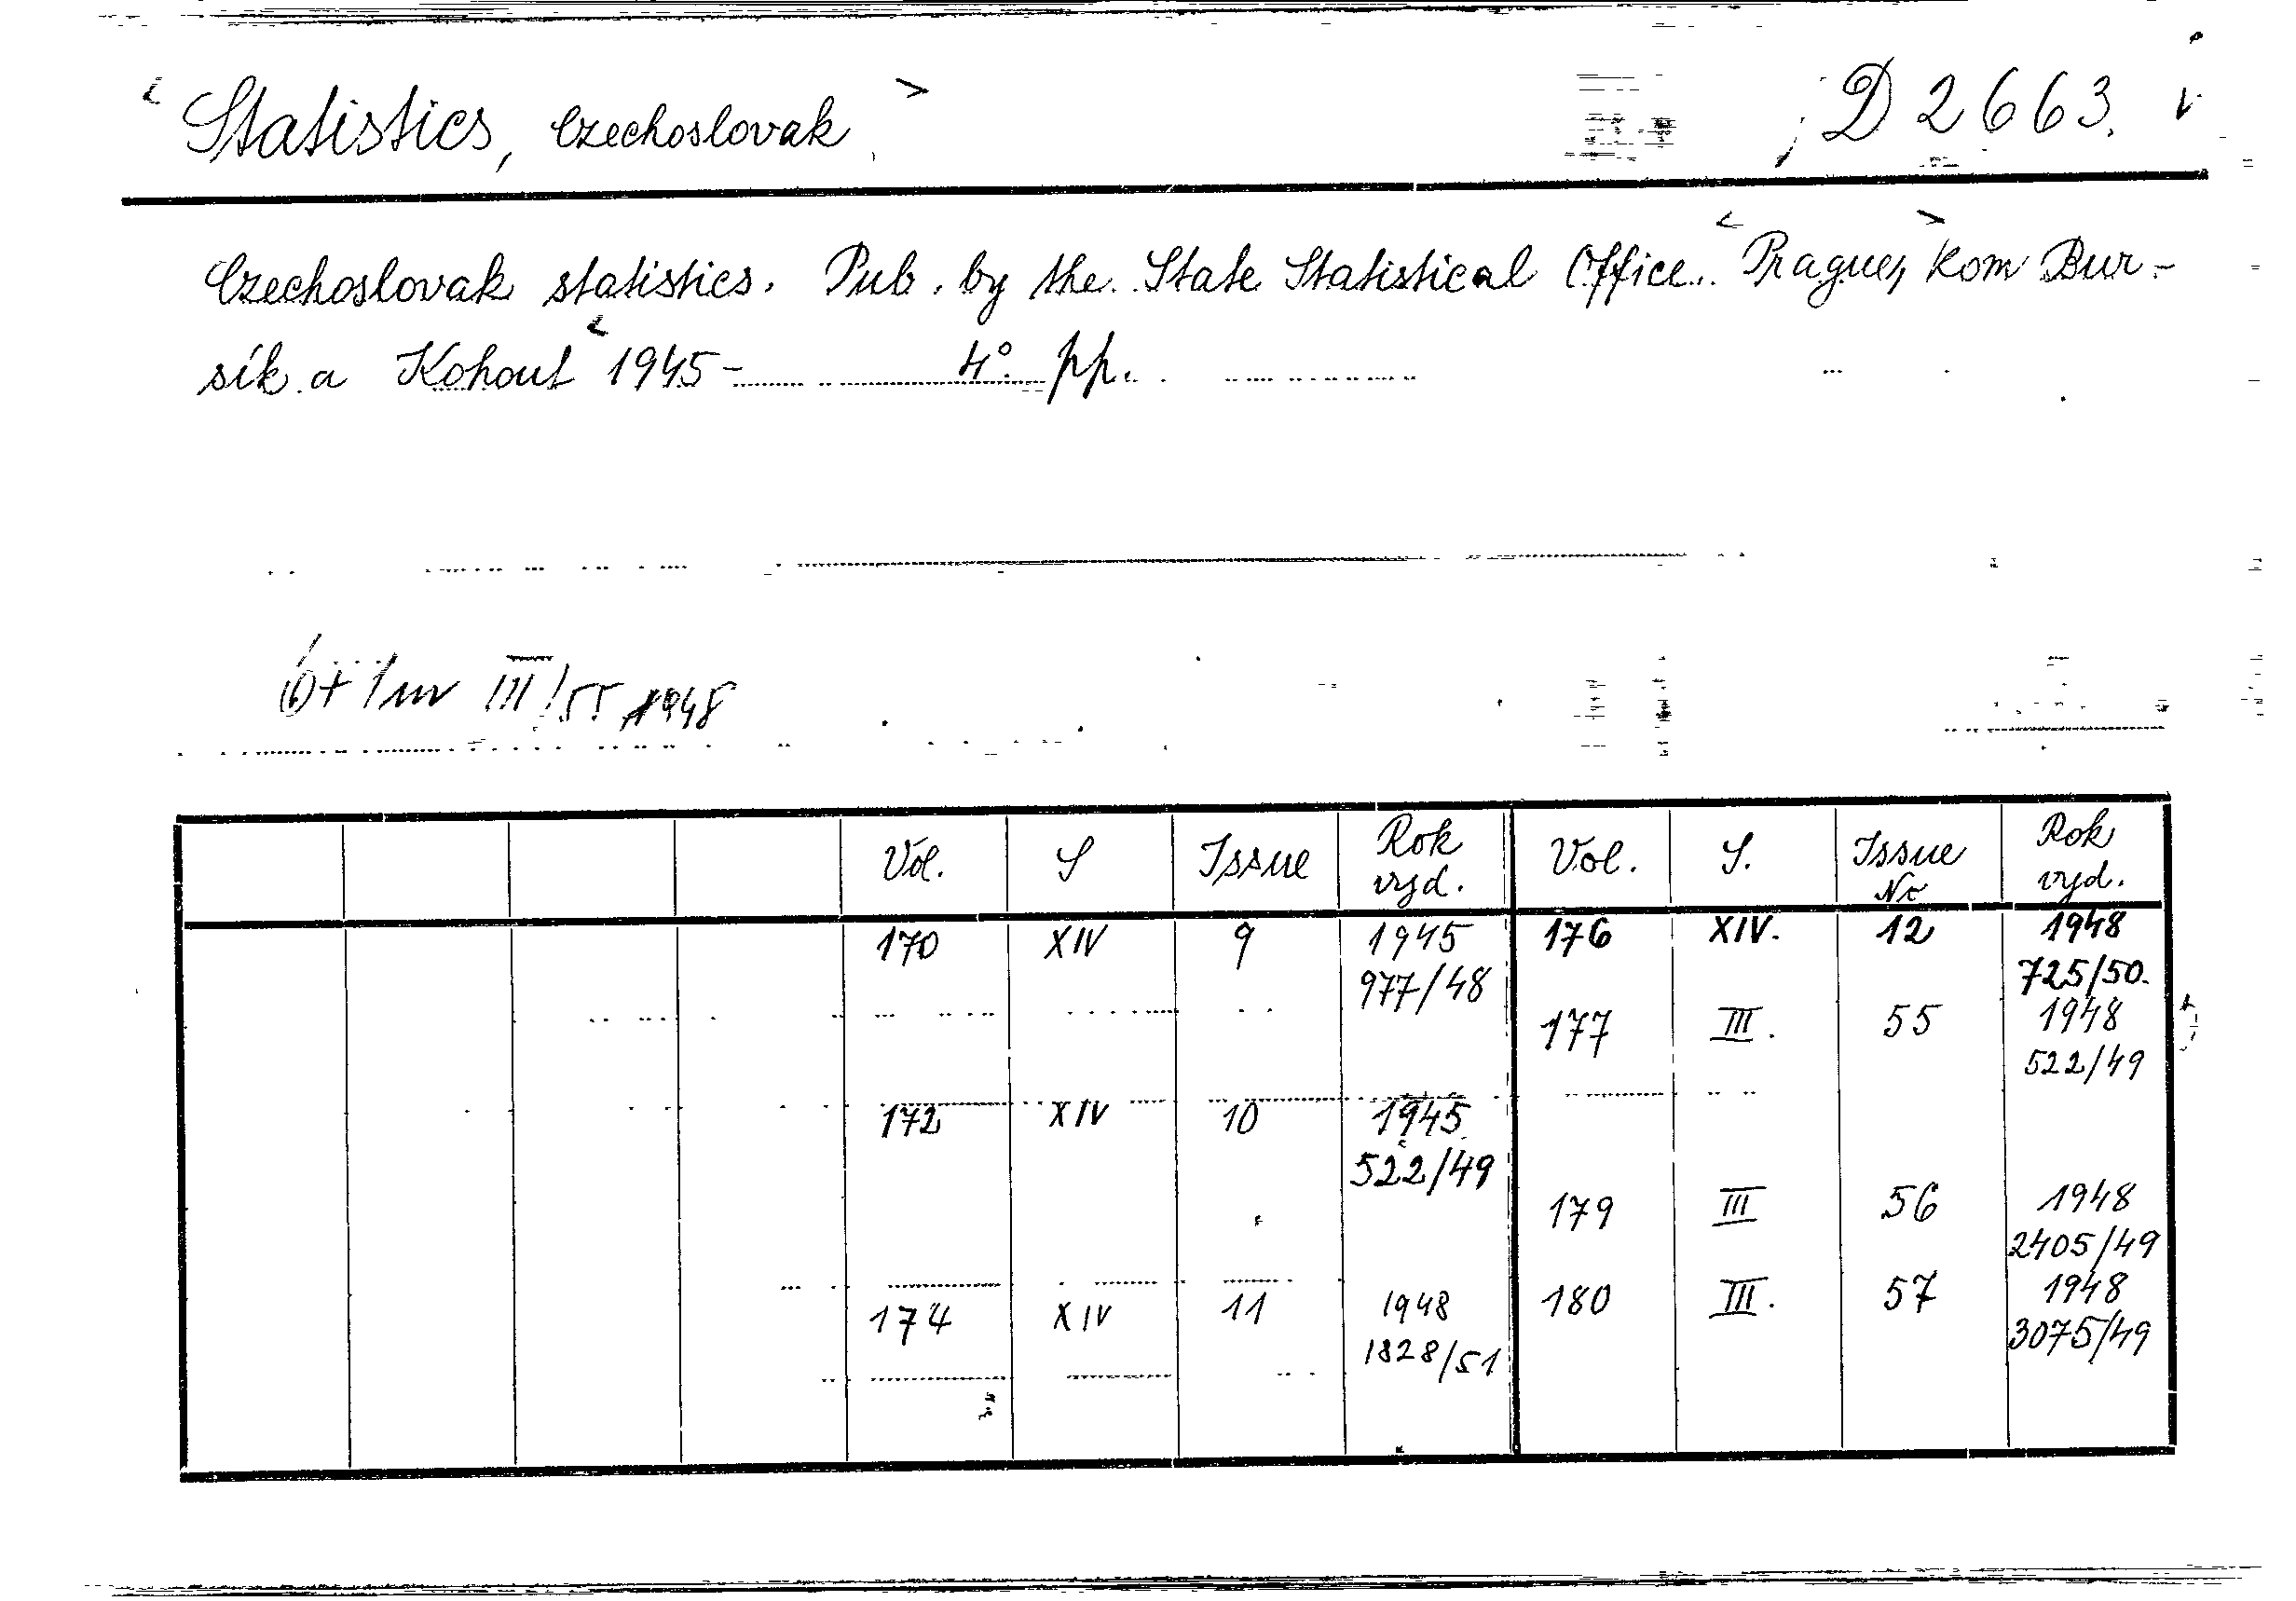 < Statistics, Czechoslovak > D 2663.
Czechoslovak statistics. Pub. by the State Statistical Office. <Prague,> kom Bur-
sík a Kohout <1945- 4° pp.
III/55 1948
Vol. S Issue Rok vyd. Vol. S. Issue Nr Rok vyd.
170 XIV 9 1945 176 XIV. 12 1948
977/48 725/50.
177 III. 55 1948
522/49
172 XIV 10 1945
522/49
179 III 56 1948
2405/49
174 XIV 11 1948 180 III. 57 1948
1828/51 3075/49